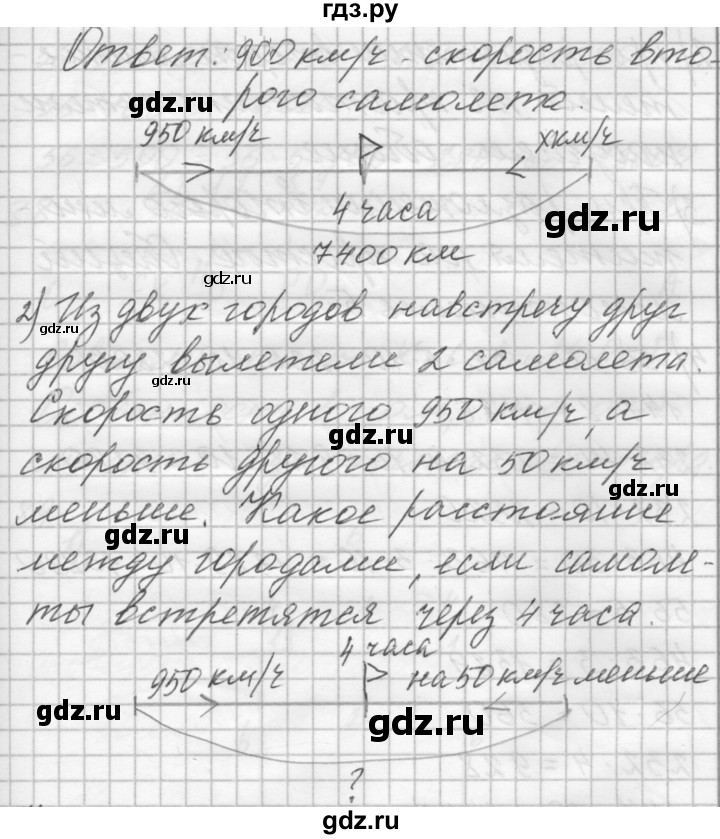 гдз.ру
Ответ: 900 км/ч - скорость вто-
gdz.ru
рого самолета.
950 км/ч
х км/ч
4 часа
gdz.ru
7400 км
gdz.ru
2) Из двух городов навстречу друг
gdz.ru
другу вылетели 2 самолета.
gdz.ru
Скорость одного 950 км/ч, а
gdz.ru
скорость другого на 50 км/ч
gdz.ru
меньше. Какое расстояние
gdz.ru
между городами, если самоле-
ты встретятся через 4 часа.
4 часа
950 км/ч
на 50 км/ч меньше
gdz.ru
gdz.ru
?
gdz.ru